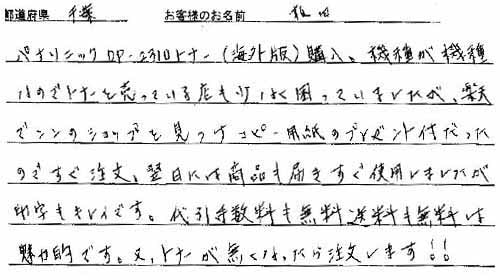 都道府県 千葉 お客様のお名前
パナソニックDP-2310トナー(海外版)購入、機種が機種
なのでトナーを売っている店も少なく困っていましたが、楽天
でシンのショップを見つけコピー用紙のプレゼント付だった
のですぐ注文、翌日には商品も届きすぐ使用しましたが
印字もキレイです。代引手数料も無料送料も無料は
魅力的です。又、トナーが無くなったら注文します!!